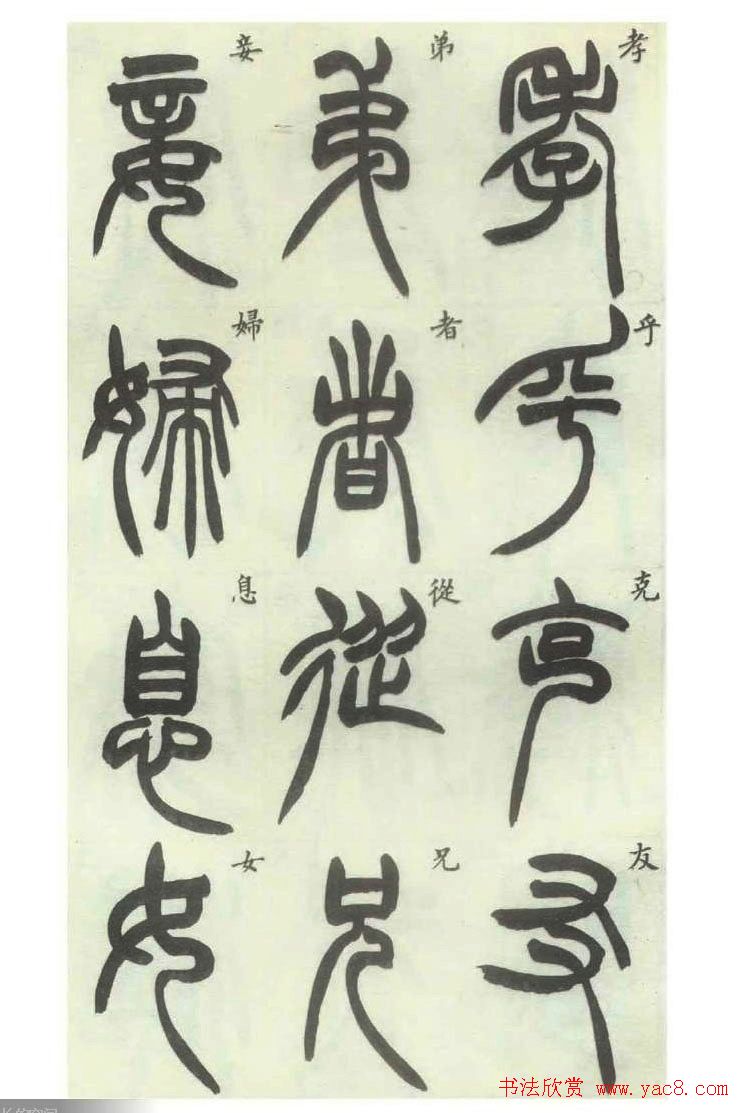 孝乎克友
弟者從兄
妾婦息女
书法欣赏 www.yac8.com